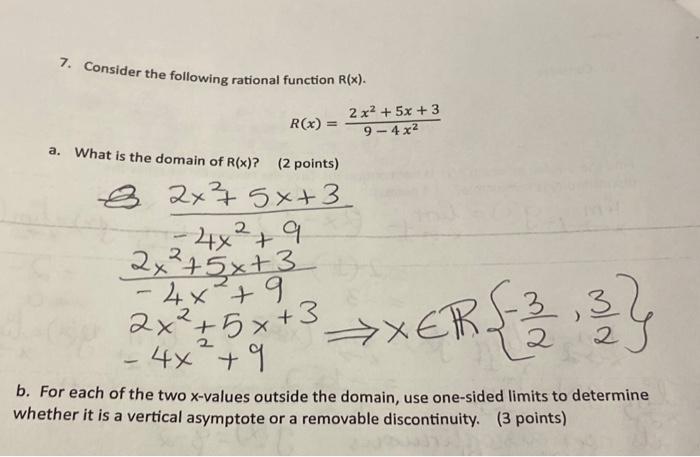 7. Consider the following rational function R(x).
R(x) = (2 x² + 5x + 3)/(9 − 4 x²)
a. What is the domain of R(x)? (2 points)
2x²+ 5x+3
-4x² + 9
2x²+5x+3
- 4x² + 9
2x²+5x+3 ⟹ x∈ℝ{-3/2, 3/2}
- 4x² + 9
b. For each of the two x-values outside the domain, use one-sided limits to determine
whether it is a vertical asymptote or a removable discontinuity. (3 points)